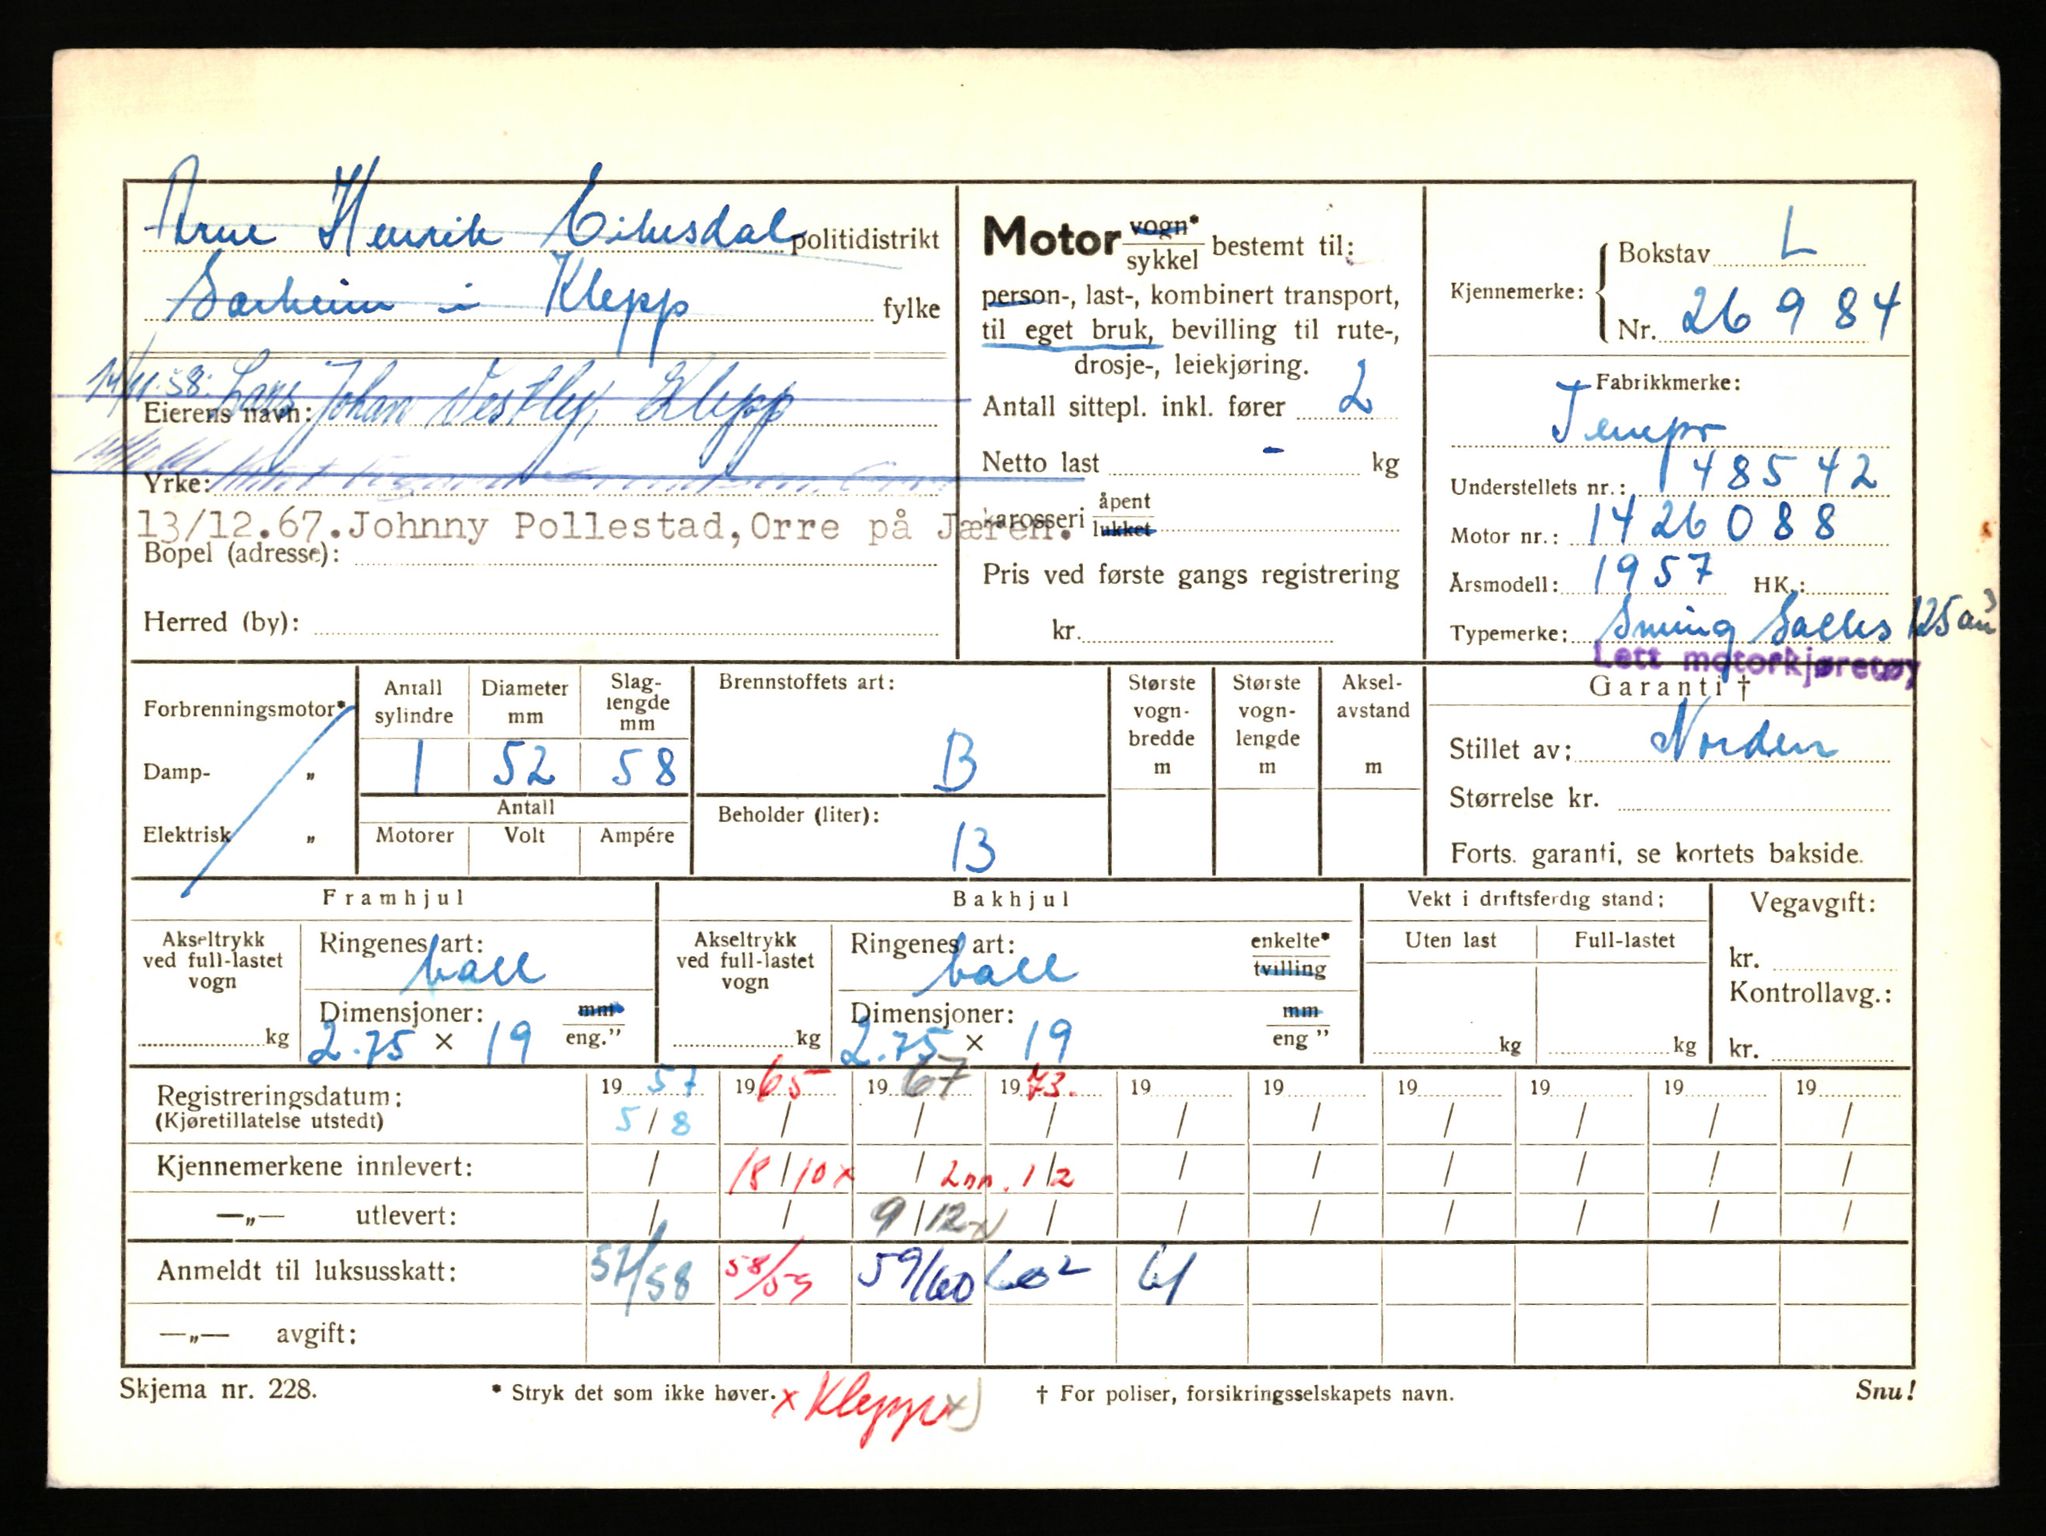 Arne Henrik politidistrikt
i Klepp fylke
14/11.58. Lars Johan Vestly, Klepp
Eierens navn:
Yrke:
13/12.67. Johnny Pollestad, Orre på Jæren.
Bopel (adresse):
Herred (by):
Motor vogn* sykkel bestemt til:
person-, last-, kombinert transport,
til eget bruk, bevilling til rute-,
drosje-, leiekjøring.
Antall sittepl. inkl. fører 2
Netto last - kg
karosseri åpent lukket
Pris ved første gangs registrering
kr.
Kjennemerke: Bokstav L
Nr. 26984
Fabrikkmerke:
Tempo
Understellets nr.: 148542
Motor nr.: 1426088
Årsmodell: 1957 HK.:
Typemerke: 125
Lett motorkjøretøy
Forbrenningsmotor*
Damp- „
Elektrisk „
Antall sylindre 1
Diameter mm 52
Slaglengde mm 58
Antall
Motorer Volt Ampére
Brennstoffets art:
B
Beholder (liter):
13
Største vogn-bredde m
Største vogn-lengde m
Aksel-avstand m
Garanti †
Stillet av: Norden
Størrelse kr.
Forts. garanti, se kortets bakside.
Framhjul
Akseltrykk ved full-lastet vogn
kg
Ringenes art: ball
Dimensjoner: mm eng."
2.75 × 19
Bakhjul
Akseltrykk ved full-lastet vogn
kg
Ringenes art: ball enkelte* tvilling
Dimensjoner: mm eng"
2.75 × 19
Vekt i driftsferdig stand:
Uten last Full-lastet
kg kg
Vegavgift:
kr.
Kontrollavg.:
kr.
Registreringsdatum: 19 57 19 65 19 67 19 73. 19 19 19 19 19 19
(Kjøretillatelse utstedt) 5/8 / / / / / / / / /
Kjennemerkene innlevert: / 18/10 x / Inn. 1/2 / / / / / /
—„— utlevert: / / 9/12 x) / / / / / / /
Anmeldt til luksusskatt: 57/58 58/59 59/60 61
—„— avgift:
Skjema nr. 228. * Stryk det som ikke høver. x Klepp x) † For poliser, forsikringsselskapets navn. Snu!